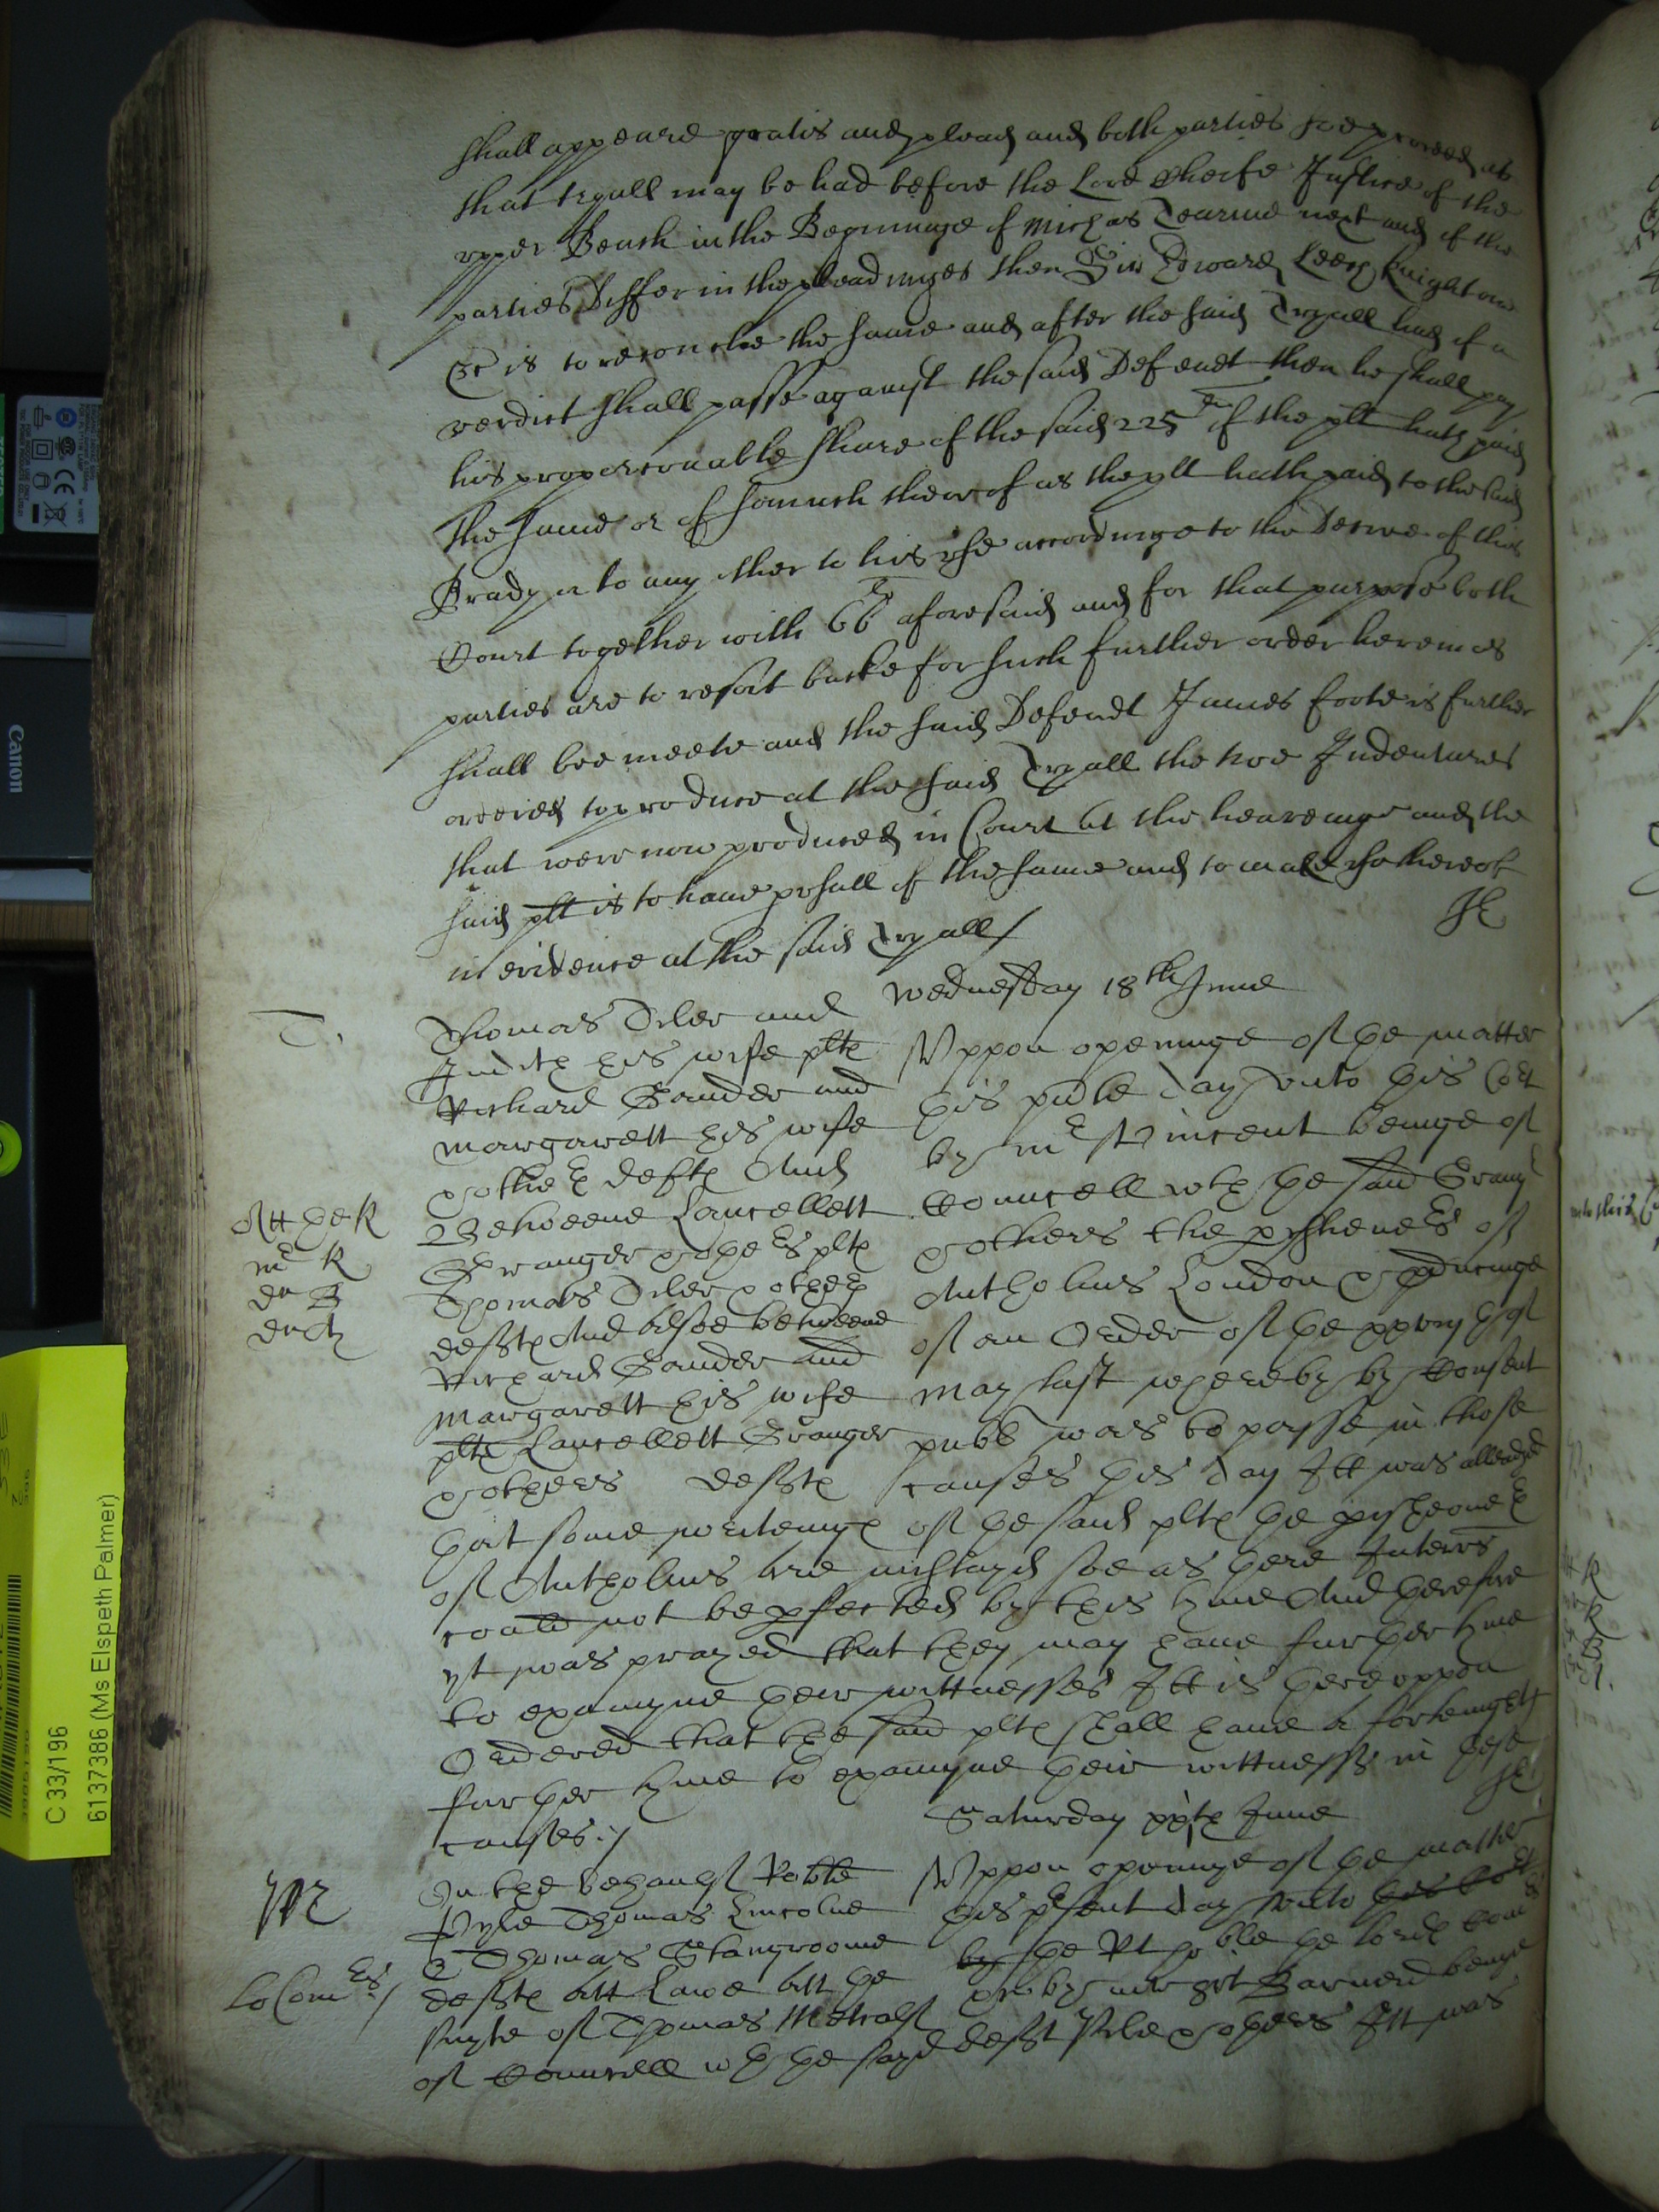 shall appeare gratis and plead and both parties soe proceed as
that tryall may be had before the Lord Cheife Justice of the
upper Bench in the Beginninge of Mich'as Tearme next and if the
parties Differ in the pleadinges then Sir Edward Leech knight one
&c is to reconcile the same and after the said Tryall had if a
verdict shall passe against the said Defendt then he shall pay
his proporconable share of the said 225 li if the plt hath paid
the same or of somuch thereof as the plt hath paid to the said
Brady or to any other to his use accordinge to the Decree of this
Court together with 66 li aforesaid and for that purpose both
parties are to resort backe for such further order herein as
shall bee meete and the said Defendt James Foote is further
ordered to produce at the said Tryall the two Indentures
that were now produced in Court at the hearinge and the
said plt is to have p'usall of the same and to make use thereof
in evidence at the said Tryall/
JE
Wednesday 18th June
T.
Thomas Tyler and
Judith his wife plts
Richard Sander and
Margarett his wife
& others defts And
Betweene Lancellett
Granger & others plts
Thomas Tyler & others
defts And alsoe betweene
Richard Sander and
Margarett his wife
plts Lancellett Granger
& others defts
Mr R
Uppon openinge of the matter
this p'nte day unto this Cort
by Mr Vincent beinge of
Councell wth the said Grang'
& others the p'ishene's of
Antholins London & p'ducinge
of an Order of the xxviijth of
May last whereby by Consent
pub' was to passe in those
causes this day Itt was alleadged
that some writeings of the said plts the p'isheone's
of Antholins are mislayd soe as there Interr's
could not be p'fected by this tyme And therefore
yt was prayed that they may have further tyme
to examyne their wittnesses Itt is thereuppon
Ordered that the said plts shall have a fortenight
further tyme to examyne their wittnesses in these
causes:/
JE
Saturday xxjth June
Lo Com'rs/
On the behaulf
Pyle Thomas Lincolne
& Thomas Stangroome
defts att Lawe att the
suyte of Thomas Metcalf
Uppon openinge of the matter
this p'sent day unto this Cort
by the Rt ho'ble the lords Com'rs
by Barnerd beinge
of Councell wth the sayd deft Pyle & others Itt was
Canon
C 33/196
6137386 (Ms Elspeth Palmer)